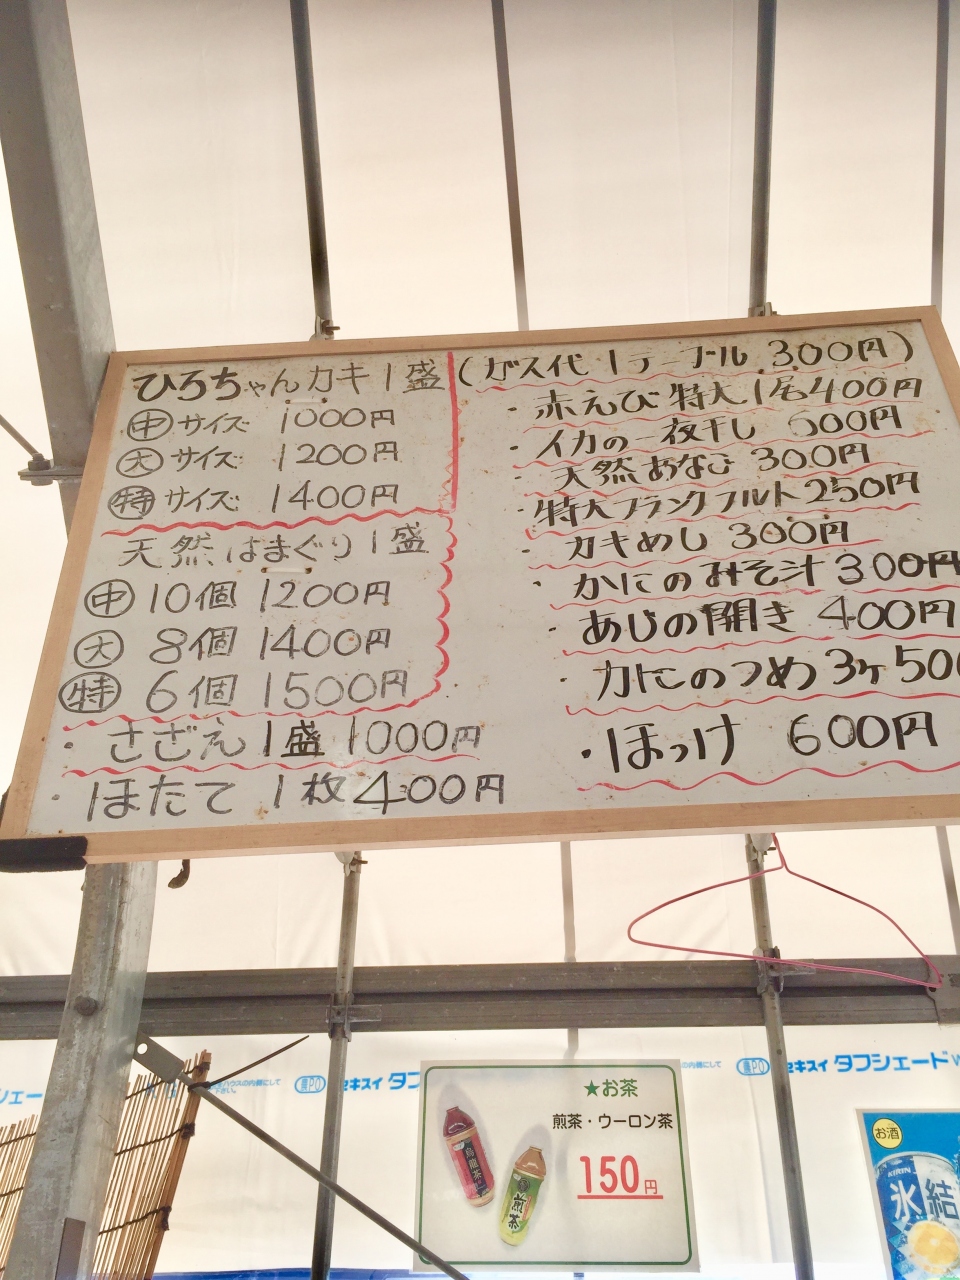 ひろちゃんカキ1盛
㊥サイズ 1000円
大サイズ 1200円
㊕サイズ 1400円
天然はまぐり1盛
㊥10個 1200円
大 8個 1400円
㊕ 6個 1500円
・さざえ1盛1000円
・ほたて 1枚400円
(ガス代1テーブル 300円)
・赤えび 特大1名400円
・イカの一夜干し 500円
・天然あなご 300円
・特大フランクフルト250円
・カキめし 300円
・かにのみそ汁300円
・あじの開き 400円
・カにのつめ3ヶ500
・ほっけ 600円
セキスイ タフシェード
★お茶
煎茶・ウーロン茶
150円
烏龍茶
煎茶
お酒
KIRIN
氷結